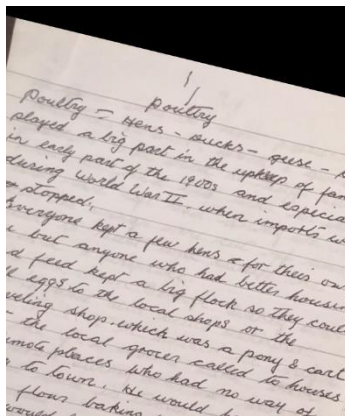 Poultry
Poultry - Hens - Ducks - geese -
played a big part in the upkeep of
in early part of the 1900s and
during World War II, when imports
stopped.
Everyone kept a few hens for their own
but anyone who had better
feed kept a big flock so they
eggs to the local shops or the
shop. which was a pony & cart
the local grocer called to houses
places who had no way of
to town. He would
flour baking